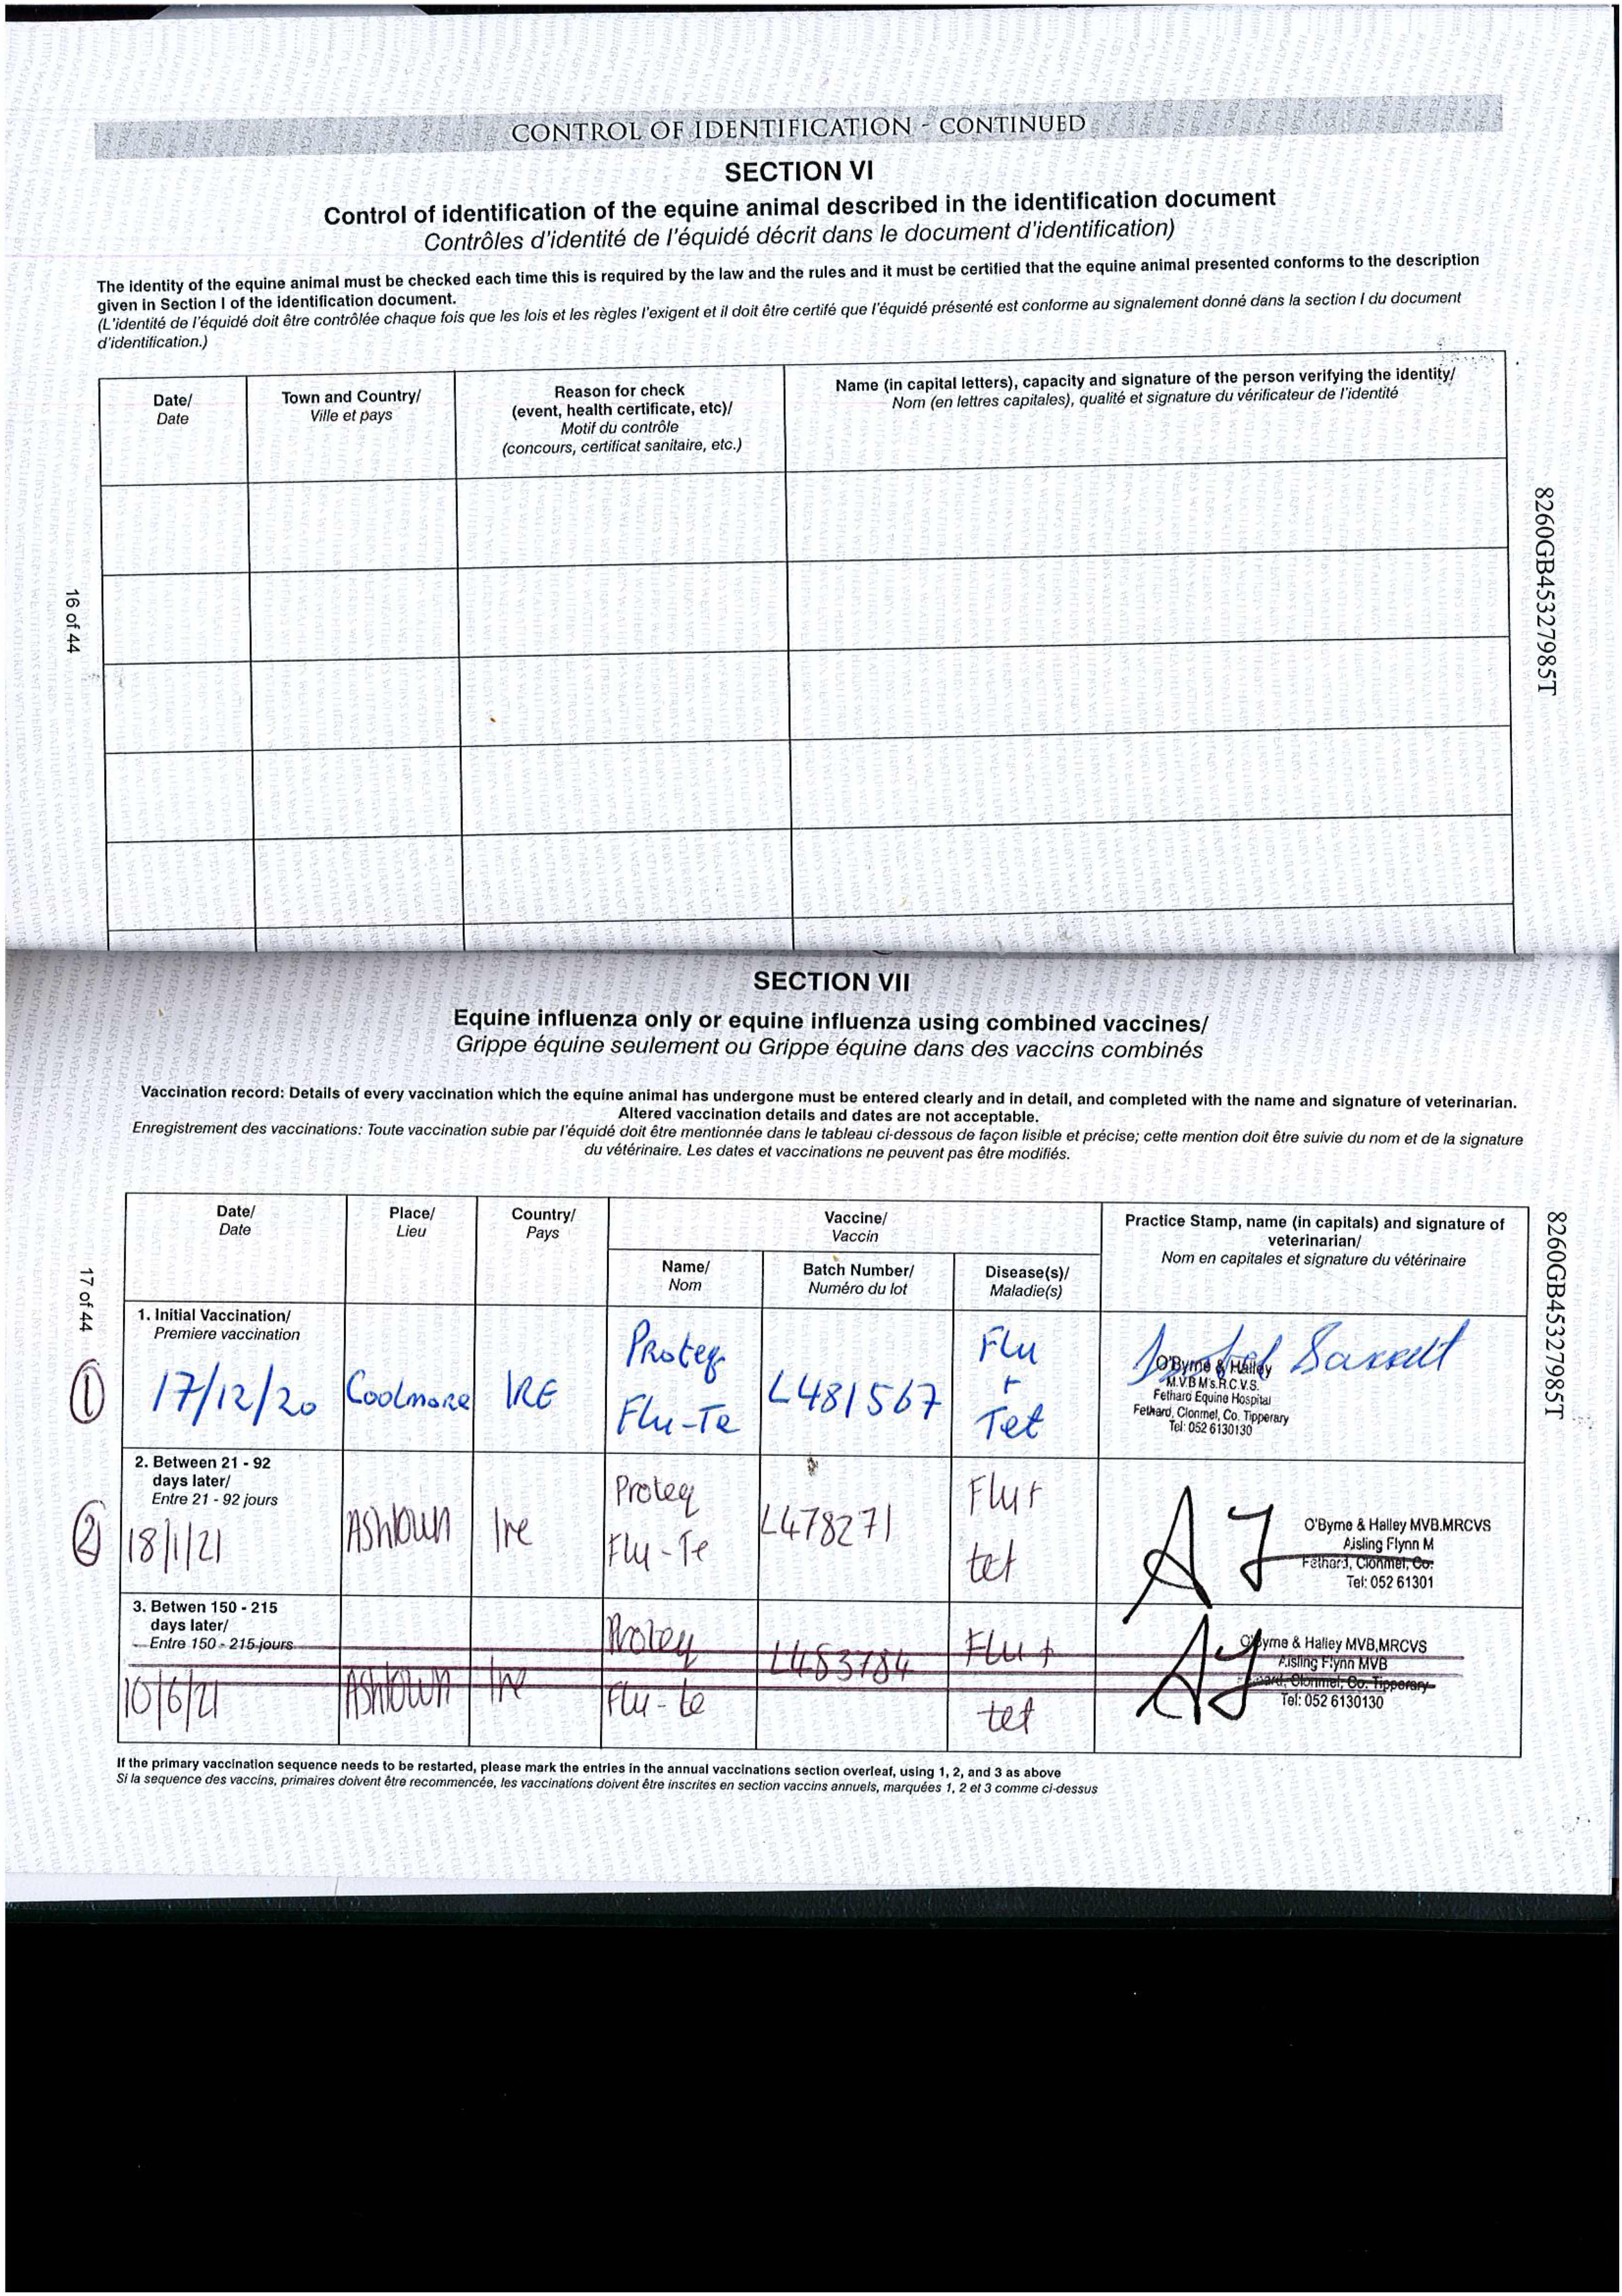 CONTROL OF IDENTIFICATION - CONTINUED
SECTION VI
Control of identification of the equine animal described in the identification document
Contrôles d'identité de l'équidé décrit dans le document d'identification)
The identity of the equine animal must be checked each time this is required by the law and the rules and it must be certified that the equine animal presented conforms to the description
given in Section I of the identification document.
(L'identité de l'équidé doit être contrôlée chaque fois que les lois et les règles l'exigent et il doit être certifé que l'équidé présenté est conforme au signalement donné dans la section I du document
d'identification.)
Date/
Date
Town and Country/
Ville et pays
Reason for check
(event, health certificate, etc)/
Motif du contrôle
(concours, certificat sanitaire, etc.)
Name (in capital letters), capacity and signature of the person verifying the identity/
Nom (en lettres capitales), qualité et signature du vérificateur de l'identité
16 of 44
8260GB45327985T
SECTION VII
Equine influenza only or equine influenza using combined vaccines/
Grippe équine seulement ou Grippe équine dans des vaccins combinés
Vaccination record: Details of every vaccination which the equine animal has undergone must be entered clearly and in detail, and completed with the name and signature of veterinarian.
Altered vaccination details and dates are not acceptable.
Enregistrement des vaccinations: Toute vaccination subie par l'équidé doit être mentionnée dans le tableau ci-dessous de façon lisible et précise; cette mention doit être suivie du nom et de la signature
du vétérinaire. Les dates et vaccinations ne peuvent pas être modifiés.
Date/
Date
Place/
Lieu
Country/
Pays
Vaccine/
Vaccin
Name/
Nom
Batch Number/
Numéro du lot
Disease(s)/
Maladie(s)
Practice Stamp, name (in capitals) and signature of
veterinarian/
Nom en capitales et signature du vétérinaire
17 of 44
8260GB45327985T
1. Initial Vaccination/
Premiere vaccination
1
17/12/20
Coolmore
IRE
Proteq
Flu-Te
L481567
Flu
+
Tet
O'Byrne & Halley
M.V.B M's.R.C.V.S.
Fethard Equine Hospital
Fethard, Clonmel, Co. Tipperary
Tel: 052 6130130
2. Between 21 - 92
days later/
Entre 21 - 92 jours
2
18/1/21
Ashtown
Ire
Proteq
Flu-Te
L478271
Flu +
tet
AF
O'Byrne & Halley MVB.MRCVS
Aisling Flynn M
Fethard, Clonmel, Co.
Tel: 052 61301
3. Betwen 150 - 215
days later/
Entre 150 - 215 jours
10/6/21
Ashtown
Ire
Proteq
Flu-te
L483784
Flu +
tet
AF
O'Byrne & Halley MVB,MRCVS
Aisling Flynn MVB
Clonmel, Co. Tipperary
Tel: 052 6130130
If the primary vaccination sequence needs to be restarted, please mark the entries in the annual vaccinations section overleaf, using 1, 2, and 3 as above
Si la sequence des vaccins, primaires doivent être recommencée, les vaccinations doivent être inscrites en section vaccins annuels, marquées 1, 2 et 3 comme ci-dessus